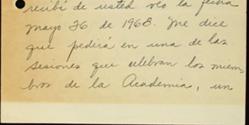 recibí de usted veo la fecha
mayo 26 de 1968. Me dice
que pedirá en una de las
sesiones que celebran los miem-
bros de la Academia, un